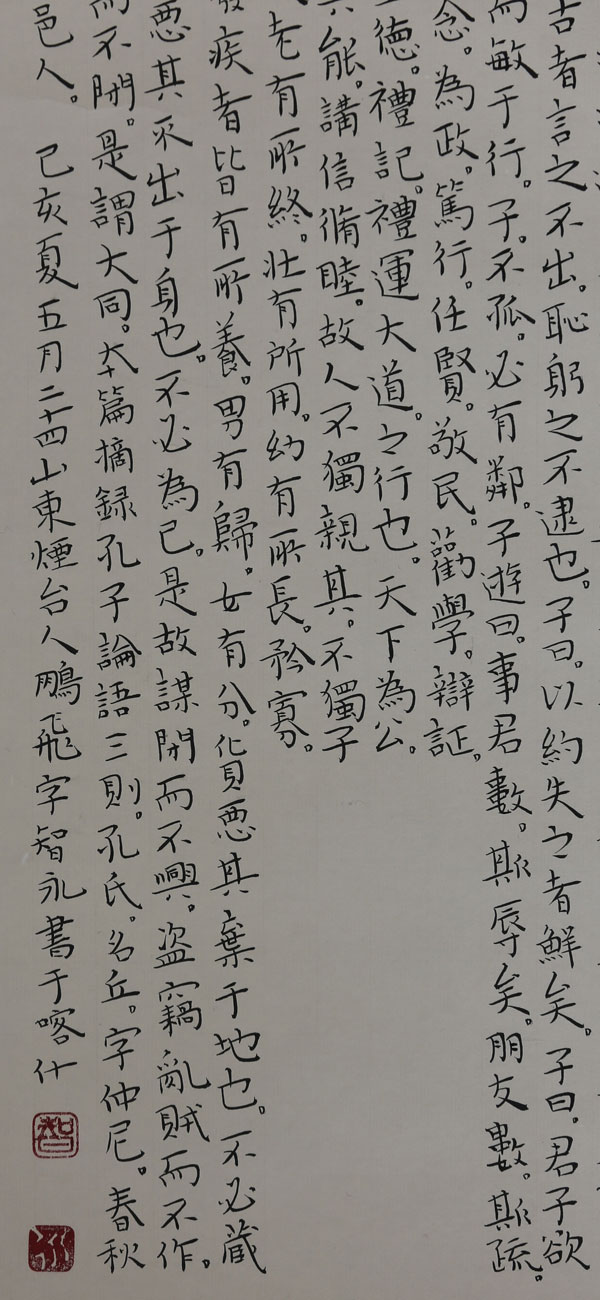 古者言之不出。恥躬之不逮也。子曰。以約失之者鮮矣。子曰。君子欲
而敏于行。子。不孤。必有鄰。子遊曰。事君數。斯辱矣。朋友數。斯疏。
念。為政。篤行。任賢。敬民。勸學。辯証。
德。禮記。禮運大道。之行也。天下為公。
其能。講信脩睦。故人不獨親其。不獨子
老有所終。壯有所用。幼有所長。矜寡。
疾者皆有所養。男有歸。女有分。貨惡其棄于地也。不必藏
惡其不出于身也。不必為己。是故謀閉而不興。盜竊亂賊而不作。
而不閉。是謂大同。本篇摘録孔子論語三則。孔氏。名丘。字仲尼。春秋
邑人。己亥夏五月二十四山東煙台人鵬飛字智永書于喀什
智
永